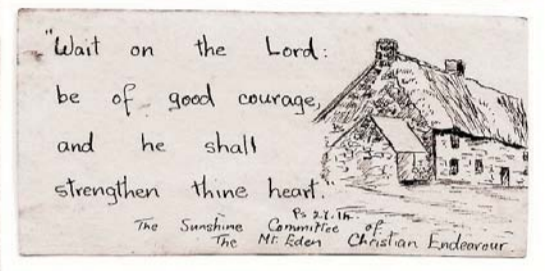 "Wait on the Lord:
be of good courage,
and he shall
strengthen thine heart."
Ps 27.14.
The Sunshine Committee of
The Mt. Eden Christian Endeavour.